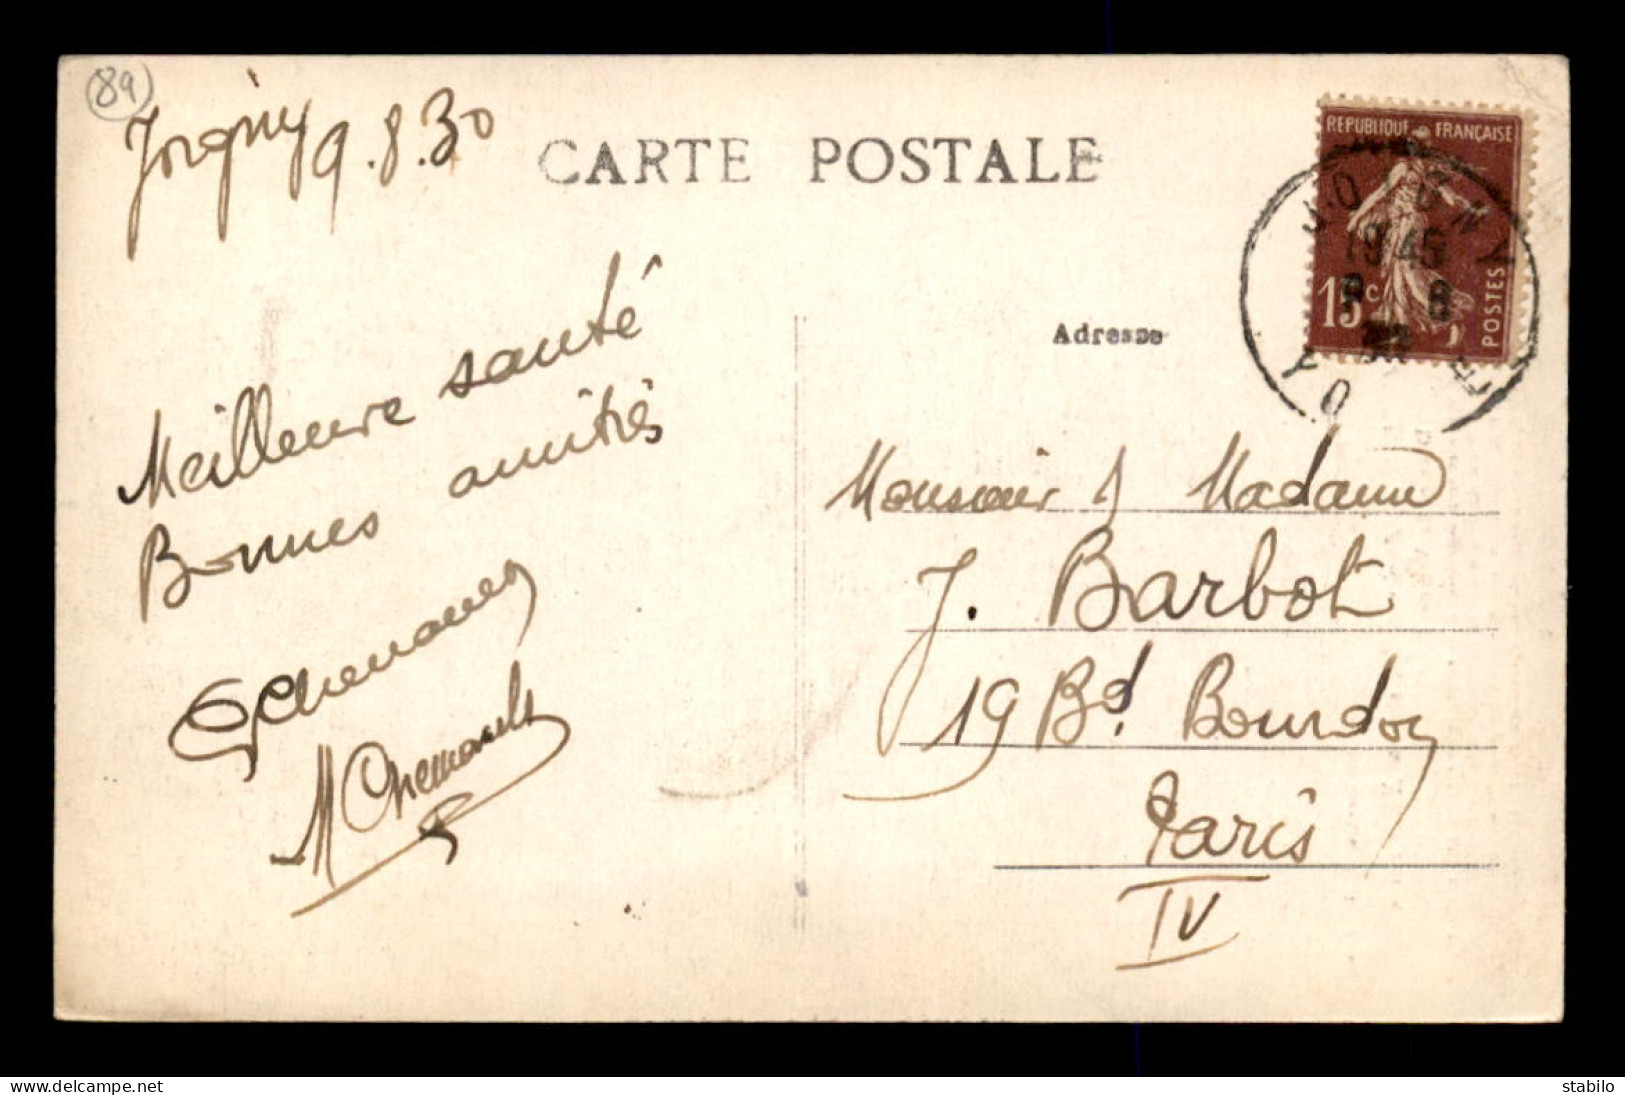 89
Joigny 9.8.30
CARTE POSTALE
REPUBLIQUE FRANÇAISE
15c
POSTES
JOIGNY
19 45
9 8
30
YONNE
Adresse
Meilleure santé
Bonnes amitiés
Monsieur & Madame
J. Barbot
19 Bd. Bourdon
Paris
IV
delcampe.net
stabilo